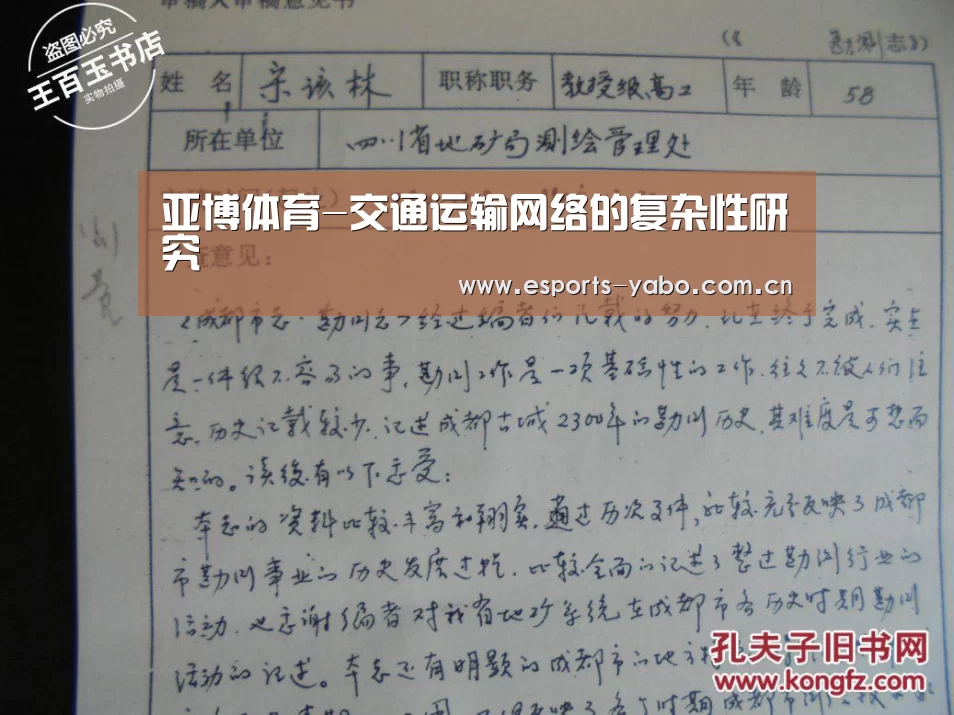 审稿人审稿意见书
盗图必究
王百玉书店
实物拍摄
(《 勘测志》)
姓 名 宋该林 职称职务 教授级高工 年 龄 58
所在单位 四川省地矿局测绘管理处
亚博体育-交通运输网络的复杂性研究
意见：
www.esports-yabo.com.cn
《成都市志·勘测志》经过编者们记载的努力，现在终于完成，实在
是一件很不容易的事，勘测工作是一项基础性的工作，往往不被人们注
意，历史记载较少，记述成都古城2300年的勘测历史，其难度是可想而
知的。读后有以下感受：
本志的资料比较丰富和翔实，通过历次文件，比较充分反映了成都
市勘测事业的历史发展过程，比较全面的记述了整过勘测行业的
活动，也感谢编者对我省地矿系统在成都市各历史时期勘测
活动的记述。本志还有明显的成都市的地方
各个时期成都市
孔夫子旧书网
www.kongfz.com